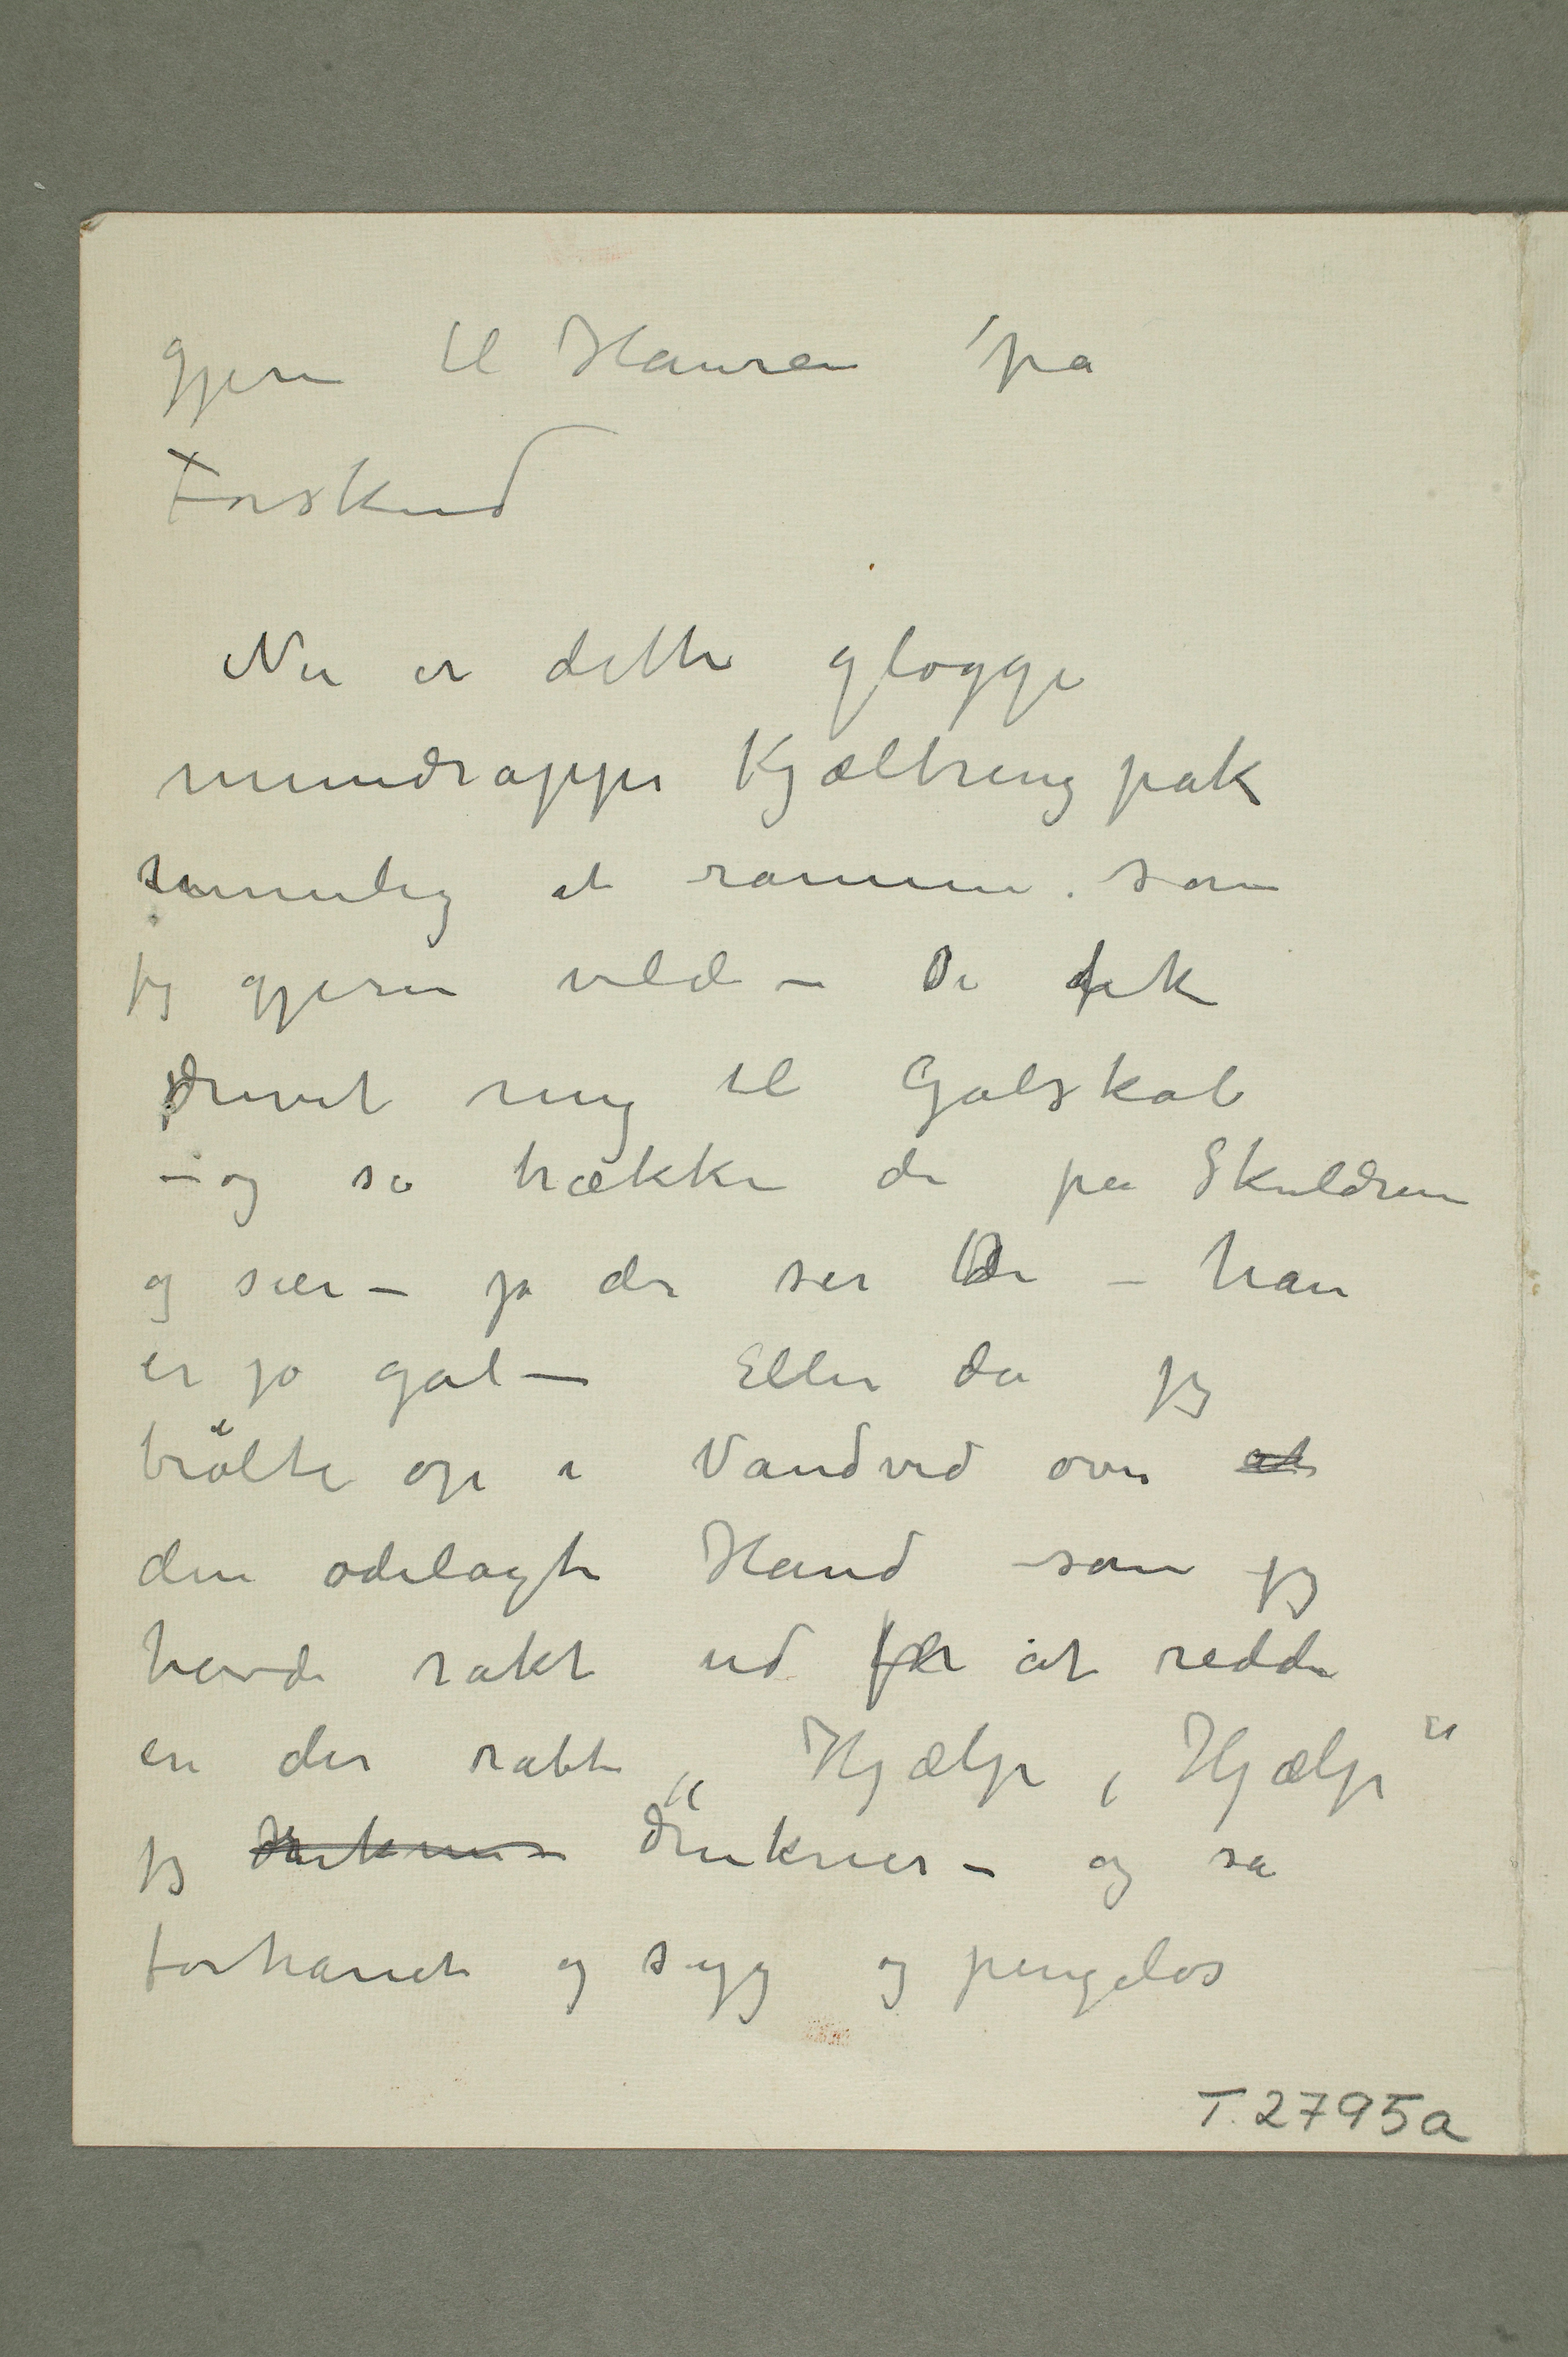 gjerne til Hansen på
Forskud
Nu er dette gløgge
mundrappe Kjæltring pak
umulig at ramme som
jeg gjerne vilde – De fik
drevet mig til Galskab
– og så trække de på Skuldren
og sier – ja der ser De – han
er jo gal – Eller da jeg
brølte op i Vandvid over at
den ødelagte Hånd som jeg
havde rakt ud for at redde
en der råbte „Hjælp, Hjælp“
jeg drukner – og så
forhånet og syg og pengeløs
T.2795a